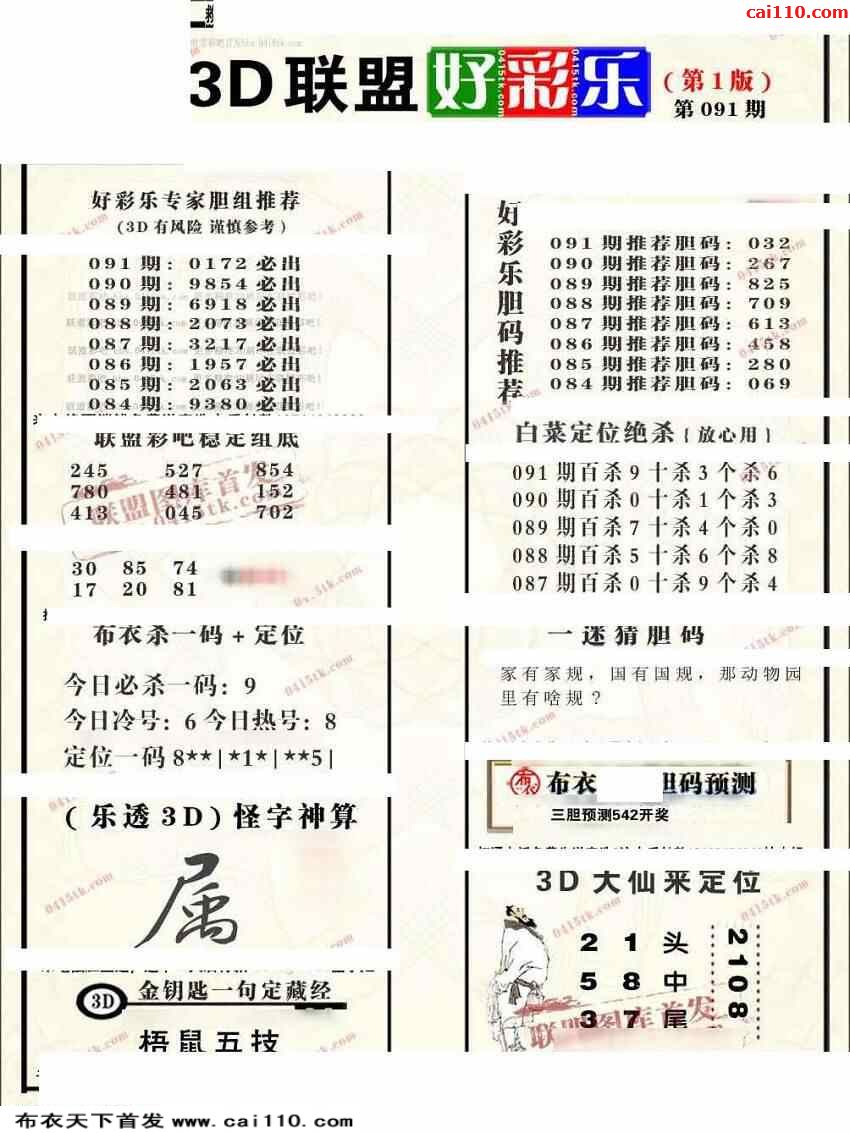 cai110.com
3D联盟 好彩乐 (第1版)
第091期
好彩乐专家胆组推荐
(3D有风险 谨慎参考)
091期: 0172必出
090期: 9854必出
089期: 6918必出
088期: 2073必出
087期: 3217必出
086期: 1957必出
085期: 2063必出
084期: 9380必出
联盟彩吧稳定组底
245 527 854
780 481 152
413 045 702
联盟图库首发
0415tk.com
30 85 74
17 20 81
布衣杀一码+定位
今日必杀一码: 9
今日冷号: 6 今日热号: 8
定位一码 8**|*1*|**5|
(乐透3D)怪字神算
属
3D 金钥匙一句定藏经
梧鼠五技
好彩乐胆码推荐
091期推荐胆码: 032
090期推荐胆码: 267
089期推荐胆码: 825
088期推荐胆码: 709
087期推荐胆码: 613
086期推荐胆码: 458
085期推荐胆码: 280
084期推荐胆码: 069
白菜定位绝杀{放心用}
091期百杀9十杀3个杀6
090期百杀0十杀1个杀3
089期百杀7十杀4个杀0
088期百杀5十杀6个杀8
087期百杀0十杀9个杀4
一迷猜胆码
家有家规，国有国规，那动物园
里有啥规？
布衣 胆码预测
三胆预测542开奖
3D大仙来定位
2 1 头
5 8 中
3 7 尾
2108
联盟图库首发
布衣天下首发 www.cai110.com